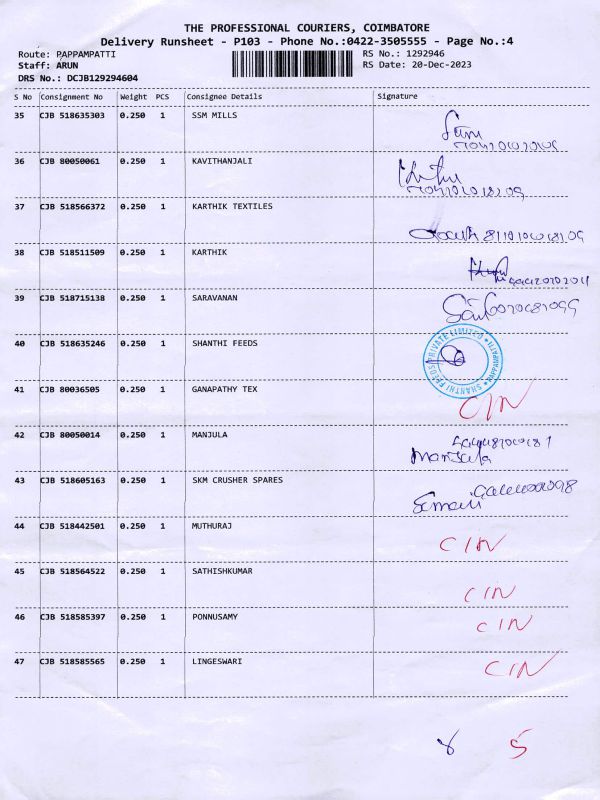 THE PROFESSIONAL COURIERS, COIMBATORE
Delivery Runsheet - P103 - Phone No.:0422-3505555 - Page No.:4
Route: PAPPAMPATTI RS No.: 1292946
Staff: ARUN RS Date: 20-Dec-2023
DRS No.: DCJB129294604
S No Consignment No Weight PCS Consignee Details Signature
35 CJB 518635303 0.250 1 SSM MILLS
36 CJB 80050061 0.250 1 KAVITHANJALI
37 CJB 518566372 0.250 1 KARTHIK TEXTILES
38 CJB 518511509 0.250 1 KARTHIK
39 CJB 518715138 0.250 1 SARAVANAN
40 CJB 518635246 0.250 1 SHANTHI FEEDS
SHANTHI FEEDS PRIVATE LIMITED * PAPPAMPATTI *
41 CJB 80036505 0.250 1 GANAPATHY TEX CIN
42 CJB 80050014 0.250 1 MANJULA
Manjula
43 CJB 518605163 0.250 1 SKM CRUSHER SPARES
44 CJB 518442501 0.250 1 MUTHURAJ CIN
45 CJB 518564522 0.250 1 SATHISHKUMAR CIN
46 CJB 518585397 0.250 1 PONNUSAMY CIN
47 CJB 518585565 0.250 1 LINGESWARI CIN
8 5